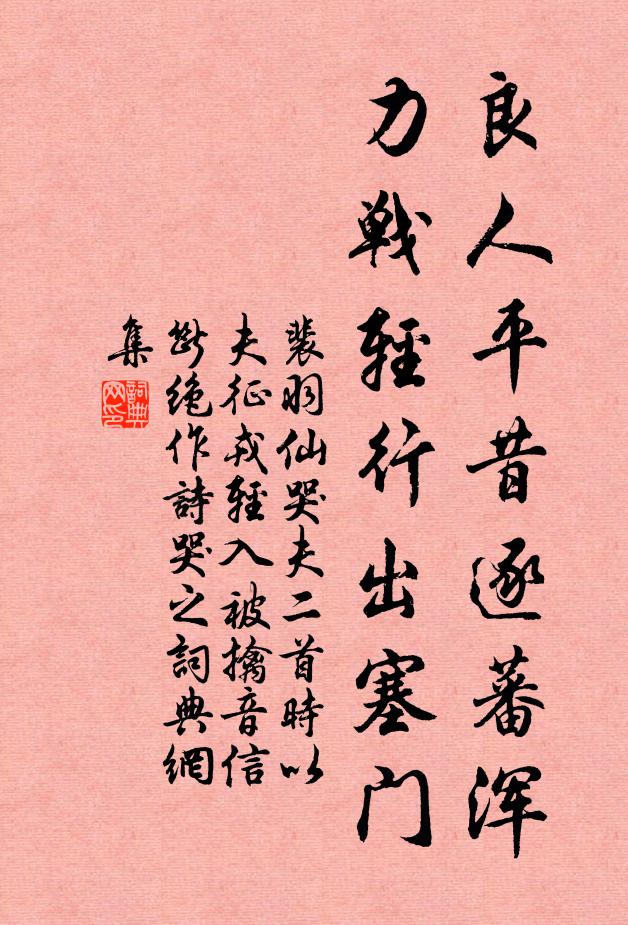 良人平昔逐蕃浑
力戰輕行出塞門
裴羽仙哭夫二首時以
夫征戎輕入被擒音信
斷绝作詩哭之詞典網
集
詞典网印